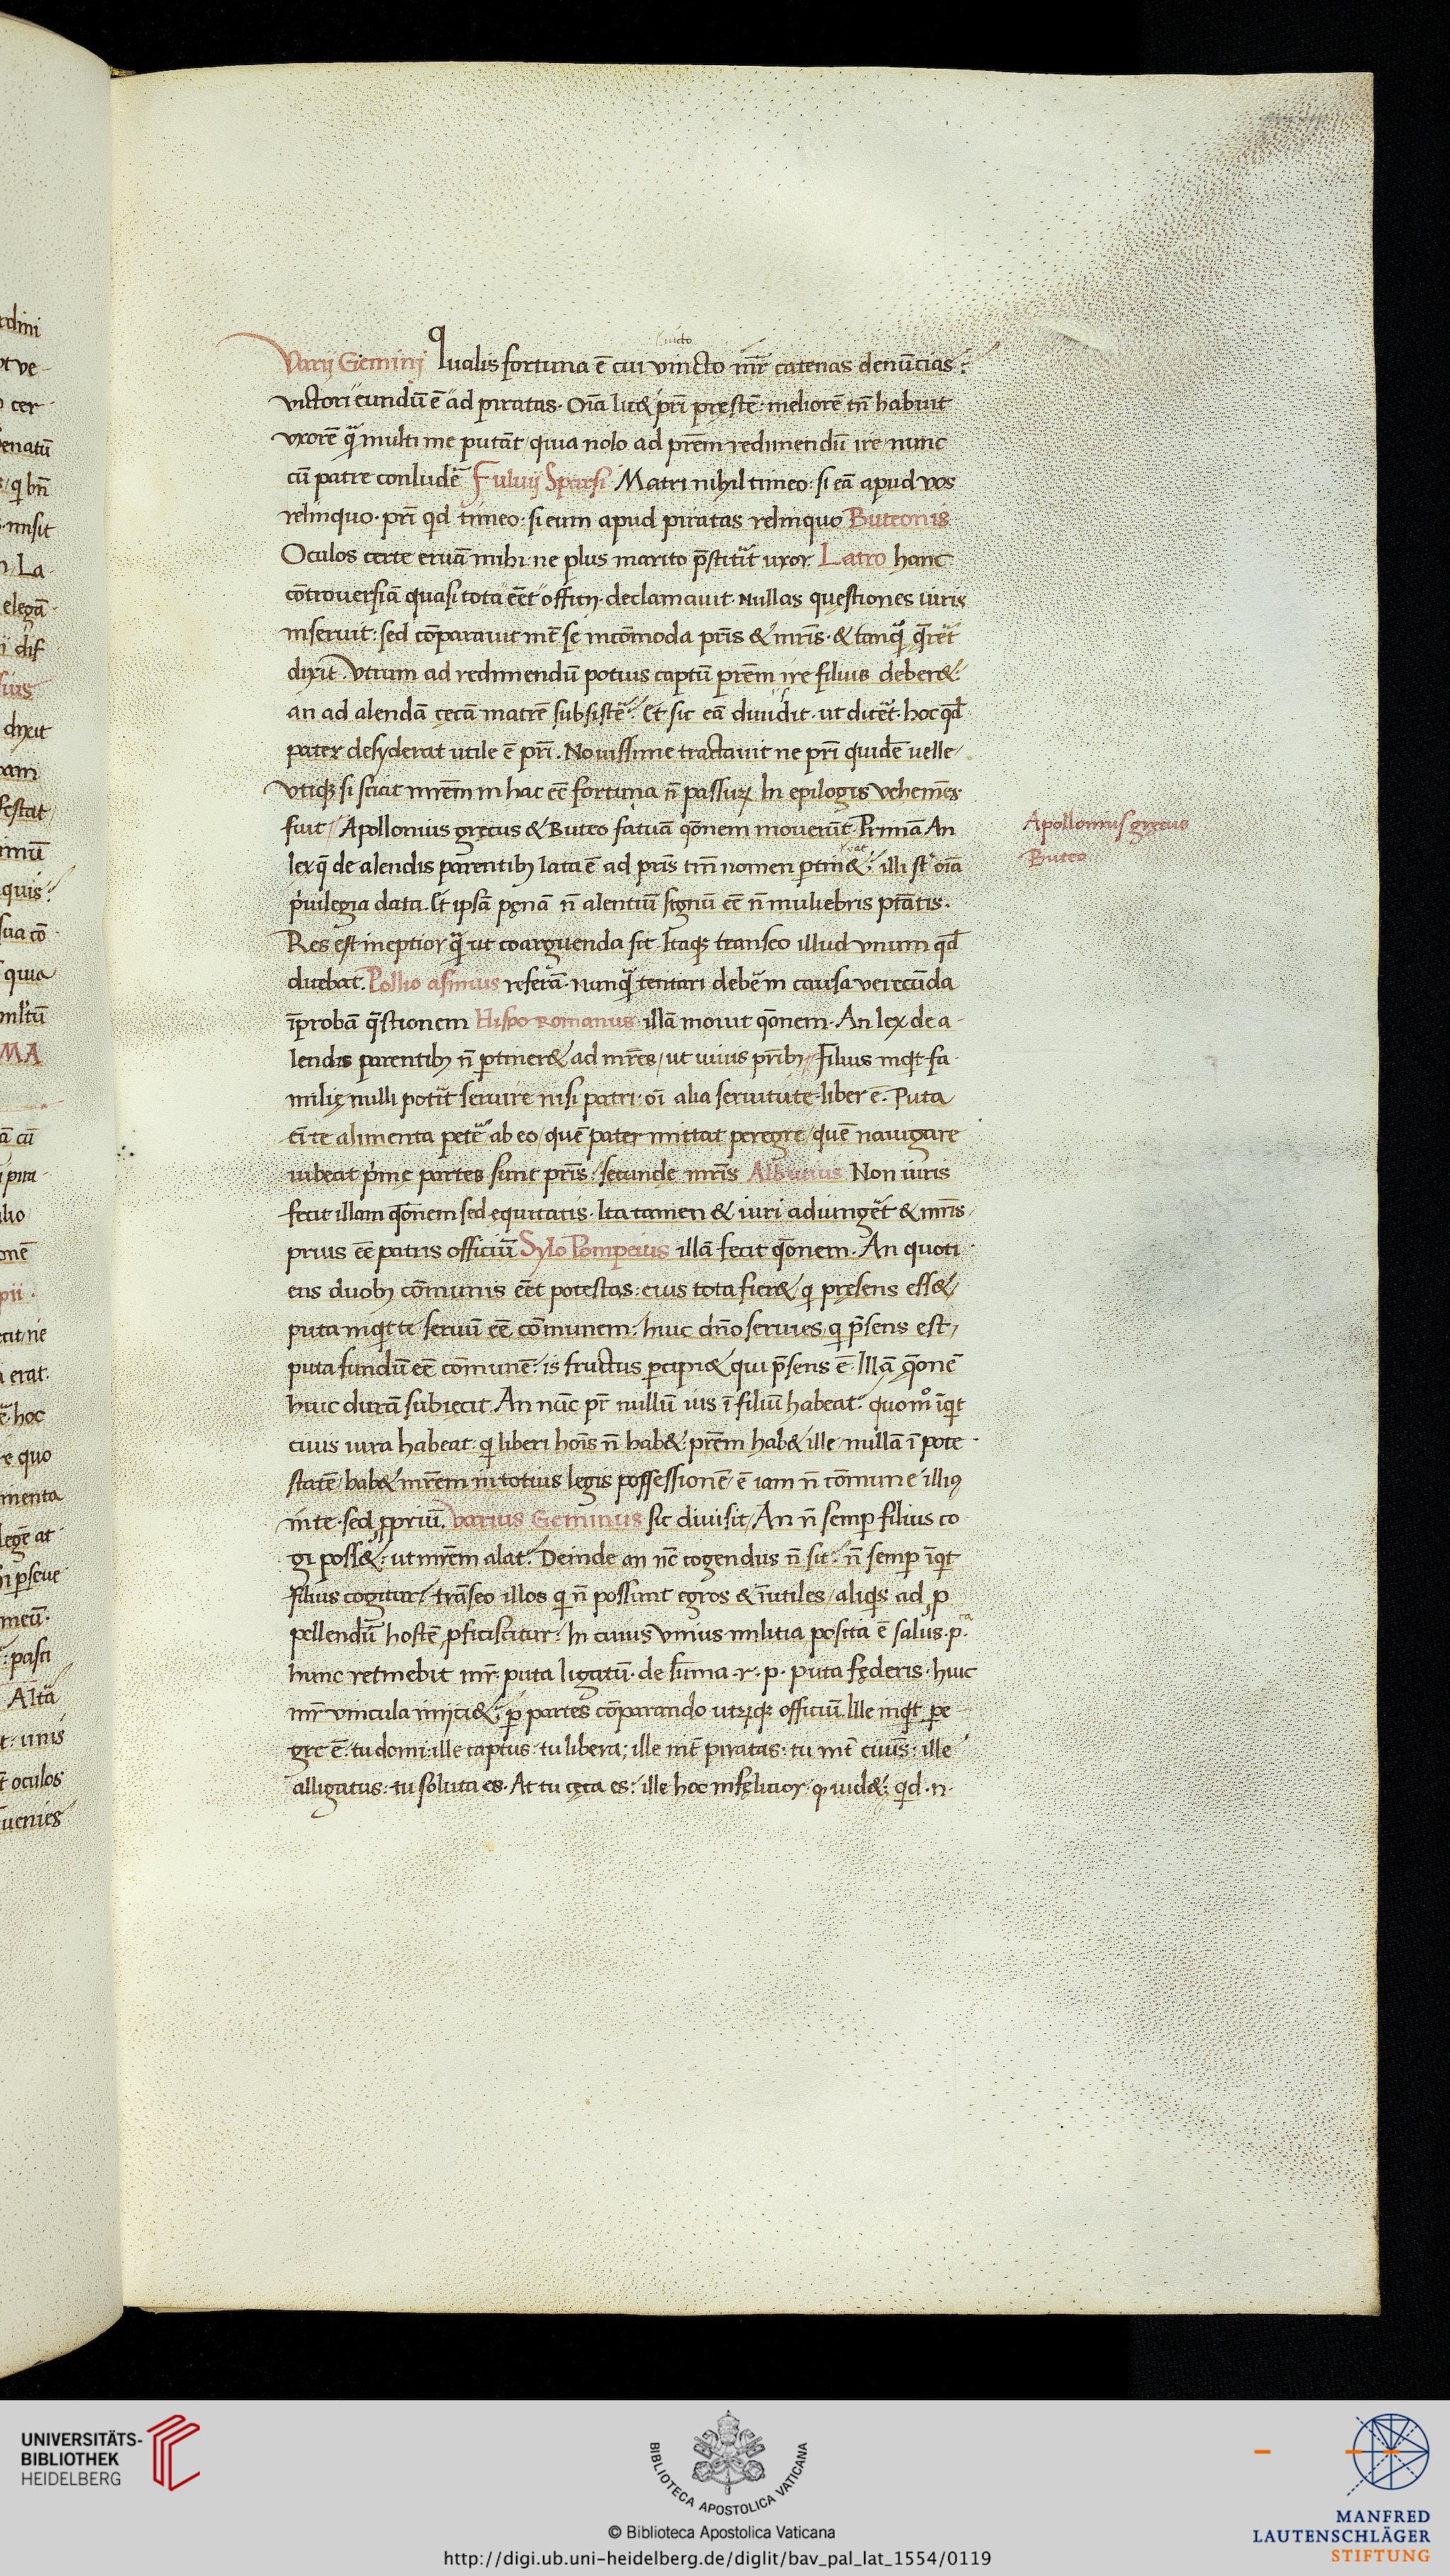 victo
Varij Gemini Qualis fortuna ē cui vincto mr̄ catenas denūcias?
victori eundū ē ad piratas. Oīa lic& pr̄i prestē: meliorē tn̄ habuit
vxorē q̄ multi me putāt quia nolo ad prēm redimendū ire nunc
cū patre conludē Fuluij Sparsi Matri nihil timeo: si eā apud vos
relinquo. pr̄i qd timeo: si eum apud piratas relinquo Buteonis
Oculos certe eruā mihi ne plus marito p̄stitit uxor. Latro hanc
cōtrouersiā quasi tota eēt officij declamauit. Nullas questiones iuris
inseruit: sed cōparauit int̄ se incōmoda pr̄is & mr̄is. & tanq̄ q̄rēt
dixit. Vtrum ad redimendū potius captū prēm ire filius deber&
an ad alendā cęcā matrē subsistē? Et sic eā diuidit. ut dicēt. hoc qd
pater desyderat utile ē pr̄i. Nouissime tractauit ne pr̄i quidē uelle
Vtiq; si sciat mrēm in hac eē fortuna n̄ passurꝝ In epilogis vehemēs
fuit Apollonius gręcus & Buteo fatuā q̄onem mouerūt. Primā An
lex q̄ de alendis parentibꝫ lata ē ad pr̄is tm̄ nomen ptin&: illi st̄ oīa
p̄uilegia data. Et ipsā pęnā n̄ alentiū signū eē n̄ muliebris ptātis.
Res est ineptior q̄ ut coarguenda sit. Itaq; transeo illud vnum qd
ducbat. Pollio asinius referā. nunq̄ tentari debē in causa verecūda
īprobā q̄stionem Hispo romanus illā mouit q̄onem. An lex de a
lendis parentibꝫ n̄ ptiner& ad mr̄es, ut uiuis pr̄ibꝫ Filius inqt fa
milię nulli potit seruire nisi patri oī alia seruitute liber ē. Puta
ēi te alimenta petē ab eo, quē pater mittat peregre, quē nauigare
iubeat p̄me partes sunt pr̄is: secunde mr̄is Albutius Non iuris
fecit illam q̄onem sed equitatis. Ita tamen & iuri adiungēt & mr̄is
prius eē patris officiū Sylo Pompeius illā fecit q̄onem. An quoti
ens duobꝫ cōmunis eēt potestas: eius tota fier& q presens ess&
puta inqt te seruū eē cōmunem: huic dn̄o seruies, q p̄sens est,
puta fundū eē cōmunē: is fructus pcipi& qui p̄sens ē. Illā q̄onē
huic durā subiecit. An nūc pr̄ nullū ius ī filiū habeat. quom̊ īqt
cuius iura habeat: q liberi hoīs n̄ hab&: prēm hab& ille nullā ī pote
statē, hab& mrēm in totius legis possessionē ē iam n̄ cōmune illiꝰ
in te sed ꝓpriū. Varius Geminus sic diuisit, An n̄ semp filius co
gi poss&: ut mrēm alat. Deinde an nc̄ cogendus n̄ sit. n̄ semp īqt
filius cogitur, trāseo illos q n̄ possunt egros & īutiles, aliqs ad ꝓ
pellendū hostē ꝓficiscitur. In cuius vnius militia posita ē salus. p.
hunc retinebit mr̄. puta ligatū. de sūma. r. p. puta fęderis. huic
mr̄ vincula inijci&, p partes cōparando utrꝝq; officiū. Ille inqt pe
gre ē: tu domi: ille captus: tu libera; ille int̄ piratas: tu int̄ ciuis: ille
alligatus: tu soluta es. At tu cęca es: ille hoc infęlicior q uid&: qd. n.
Apollonius gręcus
Buteo
UNIVERSITÄTS-
BIBLIOTHEK
HEIDELBERG
BIBLIOTECA APOSTOLICA VATICANA
© Biblioteca Apostolica Vaticana
http://digi.ub.uni-heidelberg.de/diglit/bav_pal_lat_1554/0119
MANFRED
LAUTENSCHLÄGER
STIFTUNG